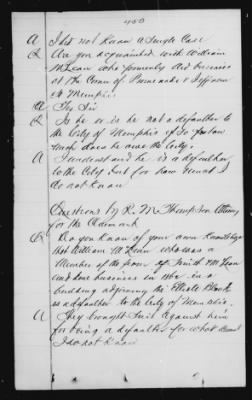 A I do not know a Single Case
Q Are you acquainted with William
McLean who formerly did business
at the Corner of Poplar & Jefferson
St Memphis
A Yes Sir
Q Is he or is he not a defaulter to
the City of Memphis & so for how
much does he owe the City.
A I understand he is a defaulter
to the City but for how much I
do not know
Questions by R. M. Thompson Attorney
for the Claimant
Q Do you know of your own knowledge
that William McLean who was a
Member of the firm of Smith McLean
and done business in 1862 in a
building adjoining the Elliott Block
is a defaulter to the City of Memphis.
A They brought Suit against him
for being a defaulter for what amount
I do not know